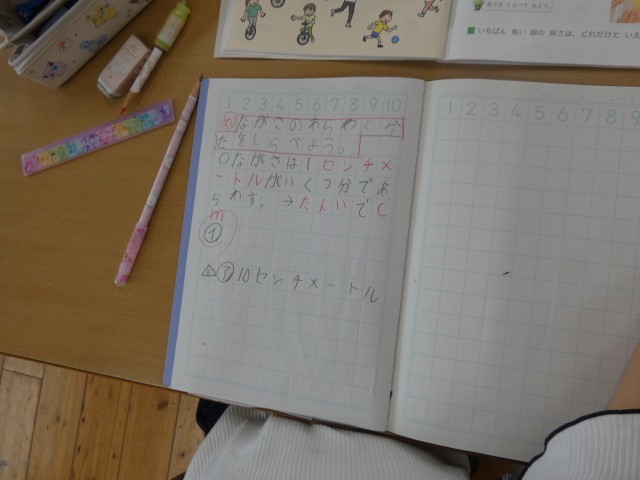 いちばん 長い 線の 長さは、どれだけと いえ
1 2 3 4 5 6 7 8 9 10
1 2 3 4 5 6 7 8 9
め ながさのあらわしか
たをしらべよう。
○ながさは1センチメ
ートルがいくつ分であ
らわす。→たんいでc
m
①
ア10センチメートル